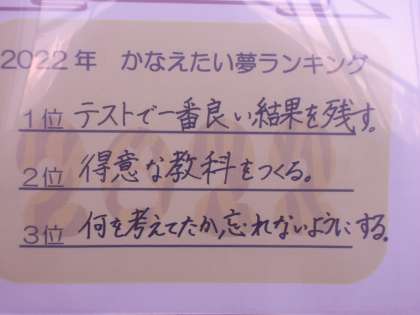 2022年 かなえたい夢ランキング
1位 テストで一番良い結果を残す。
2位 得意な教科をつくる。
3位 何を考えてたか,忘れないようにする。